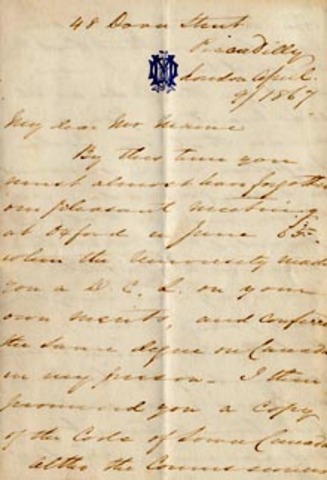 48 Dover Street
Piccadilly
London April
9/1867
My dear Mr Maine
By this time you
must almost have forgotten
our pleasant meeting
at Oxford in June 65-
when the University made
you a D. C. L. on your
own merits, and conferred
the same degree on Canada
in my person - I then
promised you a copy
of the Code of Lower Canada
altho the Commissioners